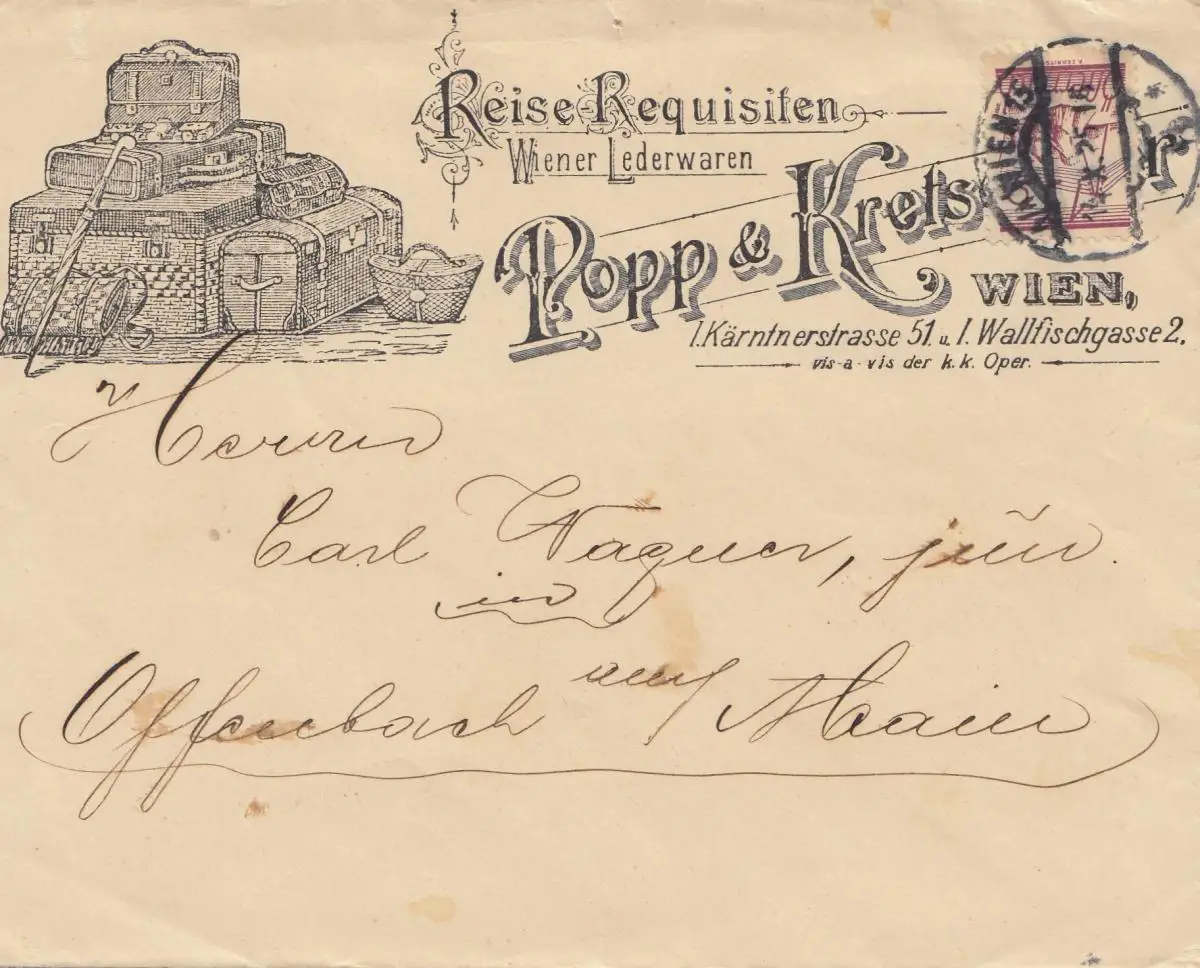 Reise Requisiten
Wiener Lederwaren
Popp & Krets r
WIEN,
I. Kärntnerstrasse 51. u. I. Wallfischgasse 2.
vis-a-vis der k.k. Oper.
WIEN
X. 25
Herrn
Carl Wagner, jun̄.
in
Offenbach auf Main